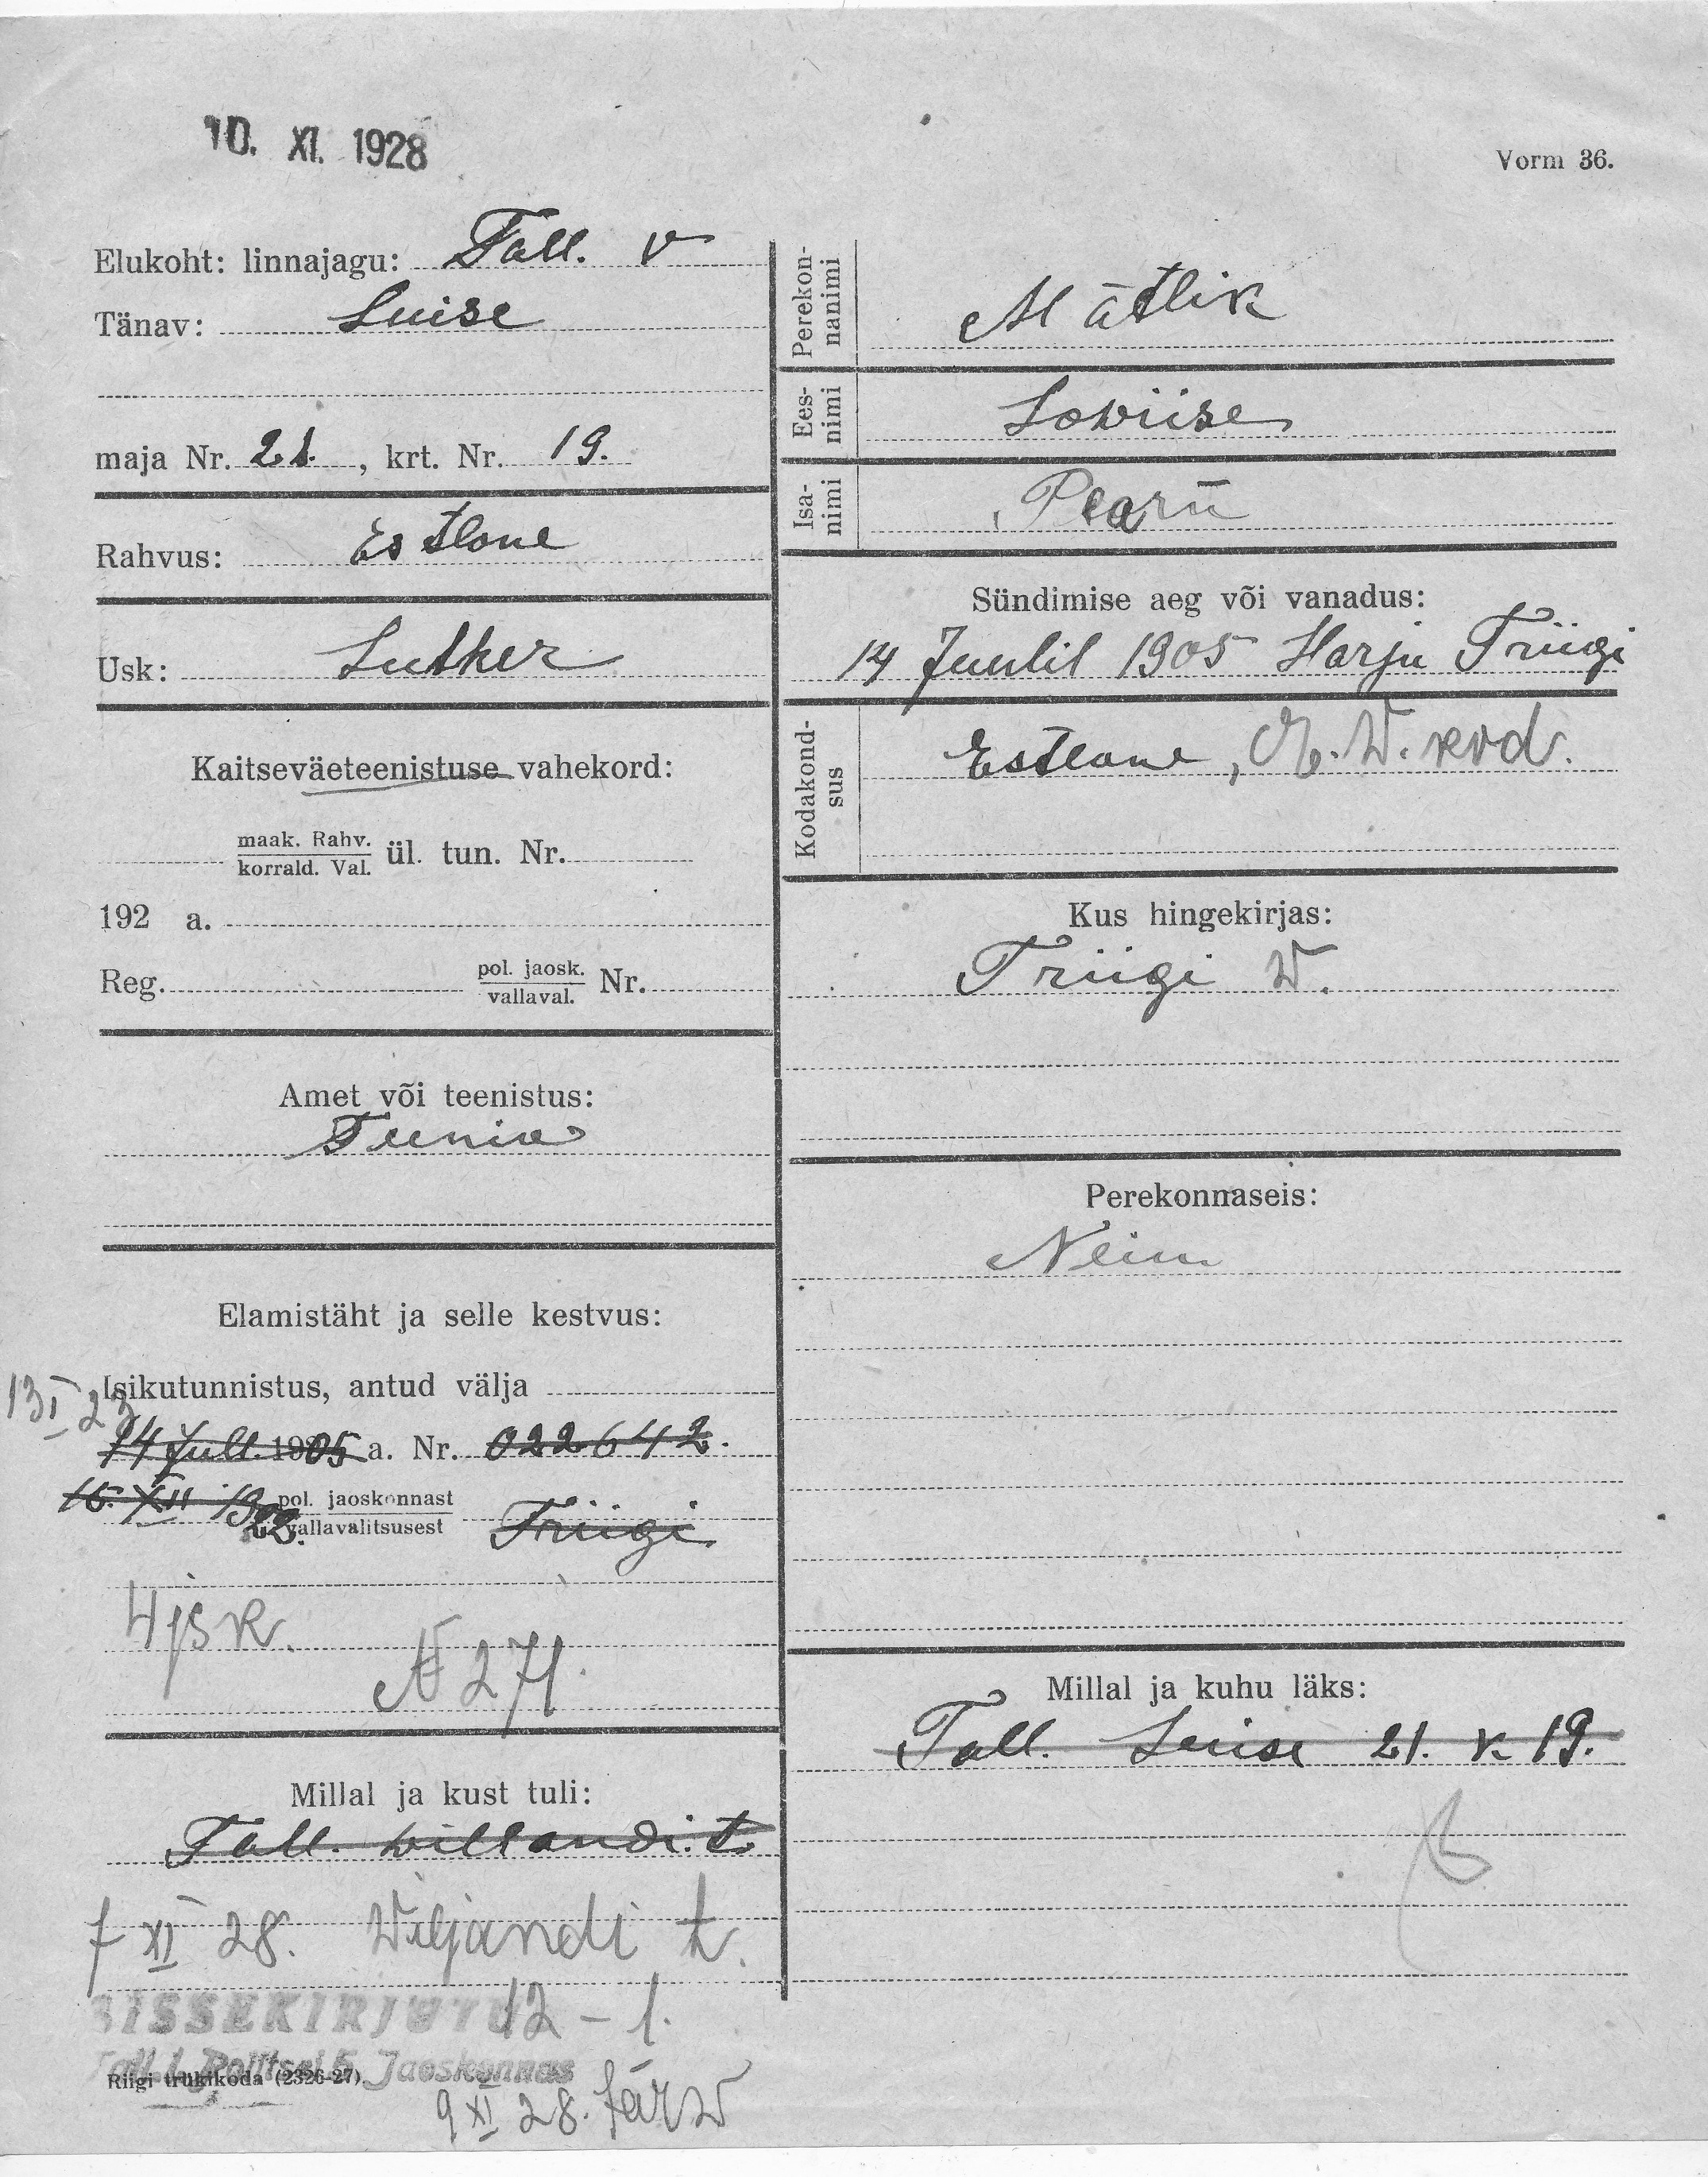 10. XI. 1928
Vorm 36.
Elukoht: linnajagu: Tall. V
Tänav: Luise
maja Nr. 21. , krt. Nr. 19.
Rahvus: Estlane
Usk: Luther
Kaitseväeteenistuse vahekord:
maak. Rahv.
korrald. Val. ül. tun. Nr.
192 a.
Reg. pol. jaosk.
vallaval. Nr.
Amet või teenistus:
Teenia
Elamistäht ja selle kestvus:
Isikutunnistus, antud välja
13 I 23
14 Jull. 1905 a. Nr. 022642.
15. XII 1922. pol. jaoskonnast
vallavalitsusest Triigi
4 jsk.
N 271.
Millal ja kust tuli:
Tall. Willandi. t.
7 XI 28. Wiljandi t.
12 – 1.
SISSEKIRJUTUD
Tall. L. Politsei 5. Jaoskonnas
Riigi trükikoda (2326-27).
9 XI 28. Järw
Perekon-
nanimi
Mätlik
Ees-
nimi
Lowiise
Isa-
nimi
Pearn
Sündimise aeg või vanadus:
14 Juulil 1905 Harju Triigi
Kodakond-
sus
Estlane, E. W. kod.
Kus hingekirjas:
Triigi W.
Perekonnaseis:
Neiu
Millal ja kuhu läks:
Tall. Luise 21. k 19.